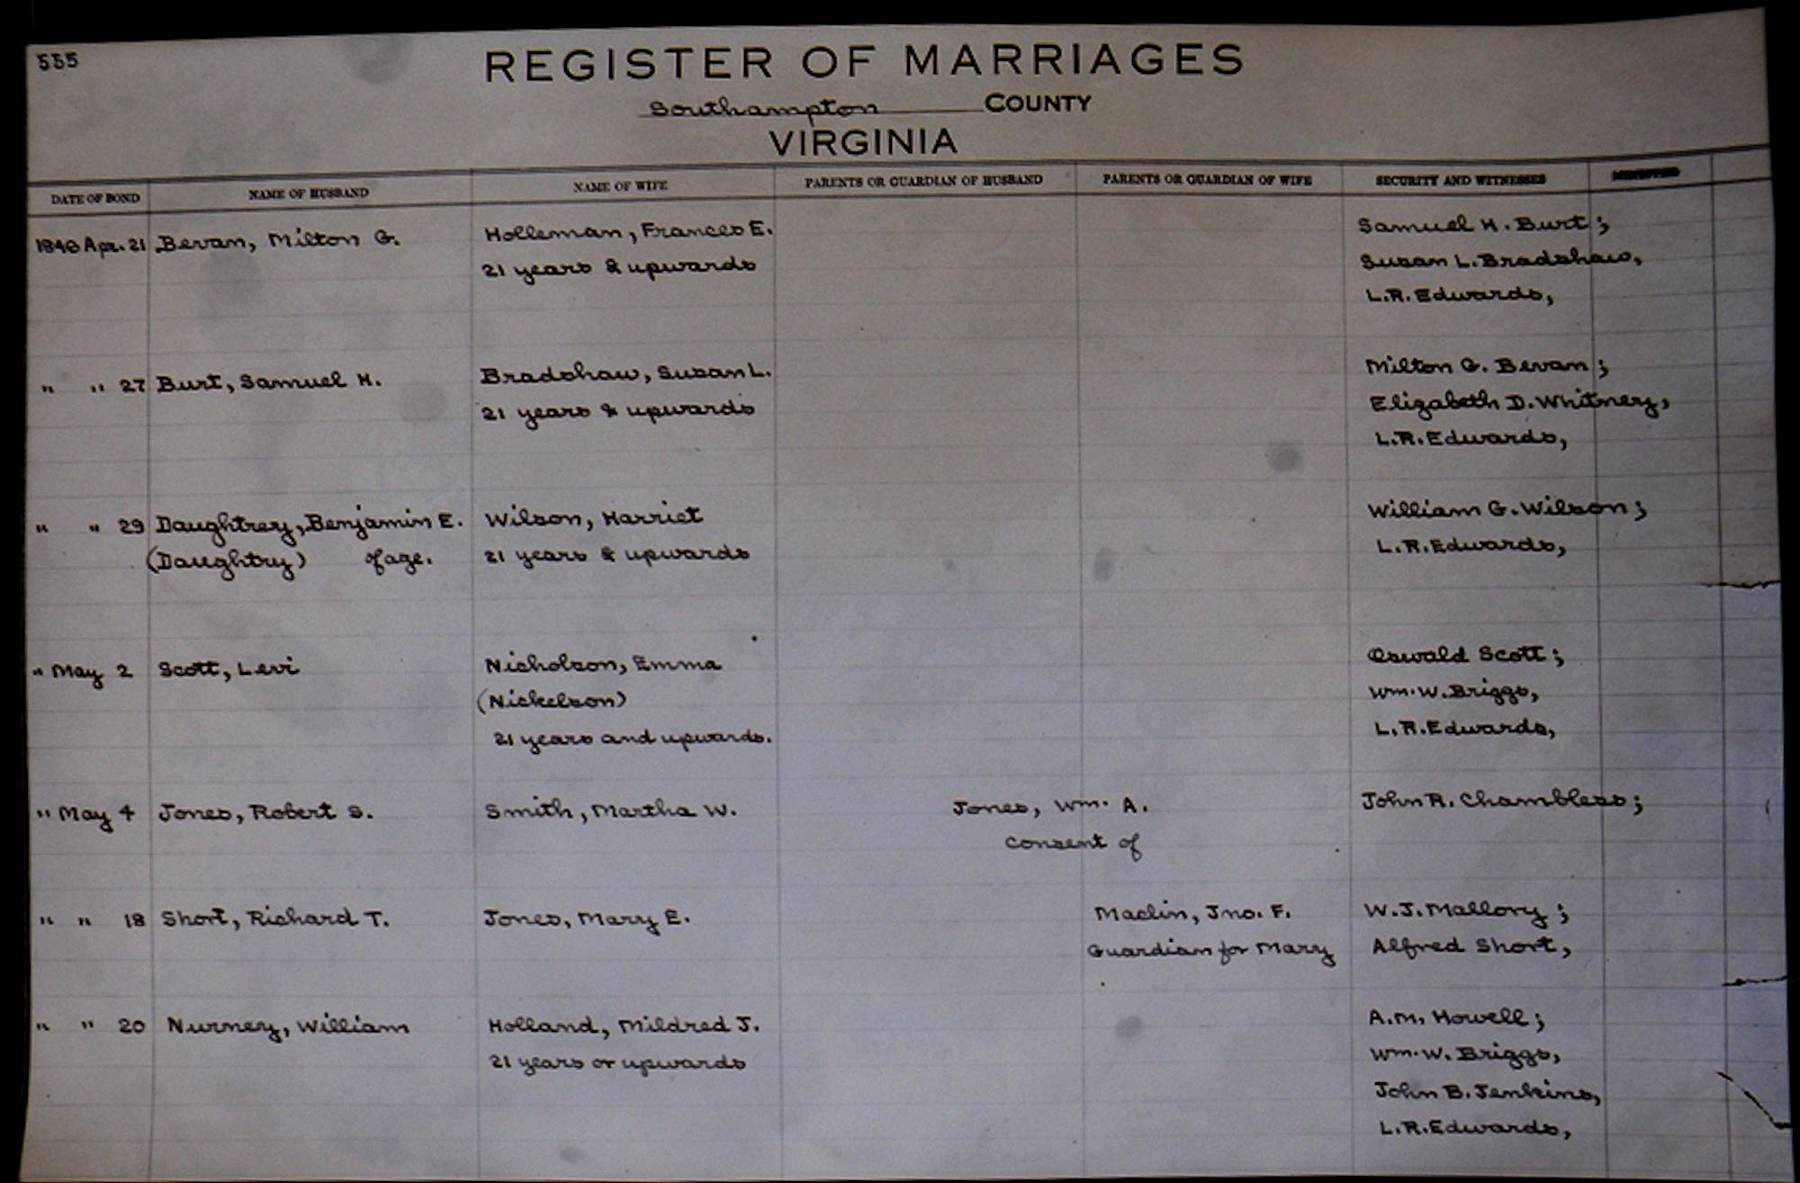 555
REGISTER OF MARRIAGES
Southampton COUNTY
VIRGINIA
DATE OF BOND NAME OF HUSBAND NAME OF WIFE PARENTS OR GUARDIAN OF HUSBAND PARENTS OR GUARDIAN OF WIFE SECURITY AND WITNESSES
1846 Apr. 21 Bevan, Milton G. Holleman, Frances E. Samuel H. Burt;
21 years & upwards Susan L. Bradshaw,
L.R. Edwards,
" " 27 Burt, Samuel H. Bradshaw, Susan L. Milton G. Bevan;
21 years & upwards Elizabeth D. Whitney,
L.R. Edwards,
" " 29 Daughtrey, Benjamin E. Wilson, Harriet William G. Wilson;
(Daughtry) of age. 21 years & upwards L.R. Edwards,
" May 2 Scott, Levi Nicholson, Emma Oswald Scott;
(Nickelson) Wm. W. Briggs,
21 years and upwards. L.R. Edwards,
" May 4 Jones, Robert S. Smith, Martha W. Jones, Wm. A. John R. Chambless;
Consent of
" " 18 Short, Richard T. Jones, Mary E. Maclin, Jno. F. W.J. Mallory;
Guardian for Mary Alfred Short,
" " 20 Nurney, William Holland, Mildred J. A.M. Howell;
21 years or upwards Wm. W. Briggs,
John B. Jenkins,
L.R. Edwards,